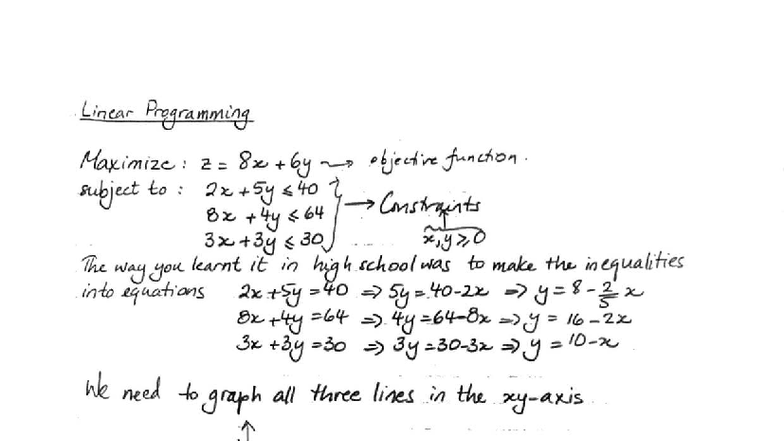 Linear Programming
Maximize: z = 8x + 6y ⟿ objective function.
subject to: 2x + 5y ≤ 40
8x + 4y ≤ 64 → Constraints
3x + 3y ≤ 30 x, y ≥ 0
The way you learnt it in high school was to make the inequalities
into equations 2x + 5y = 40 ⇒ 5y = 40 - 2x ⇒ y = 8 - 2/5 x
8x + 4y = 64 ⇒ 4y = 64 - 8x ⇒ y = 16 - 2x
3x + 3y = 30 ⇒ 3y = 30 - 3x ⇒ y = 10 - x
We need to graph all three lines in the xy-axis